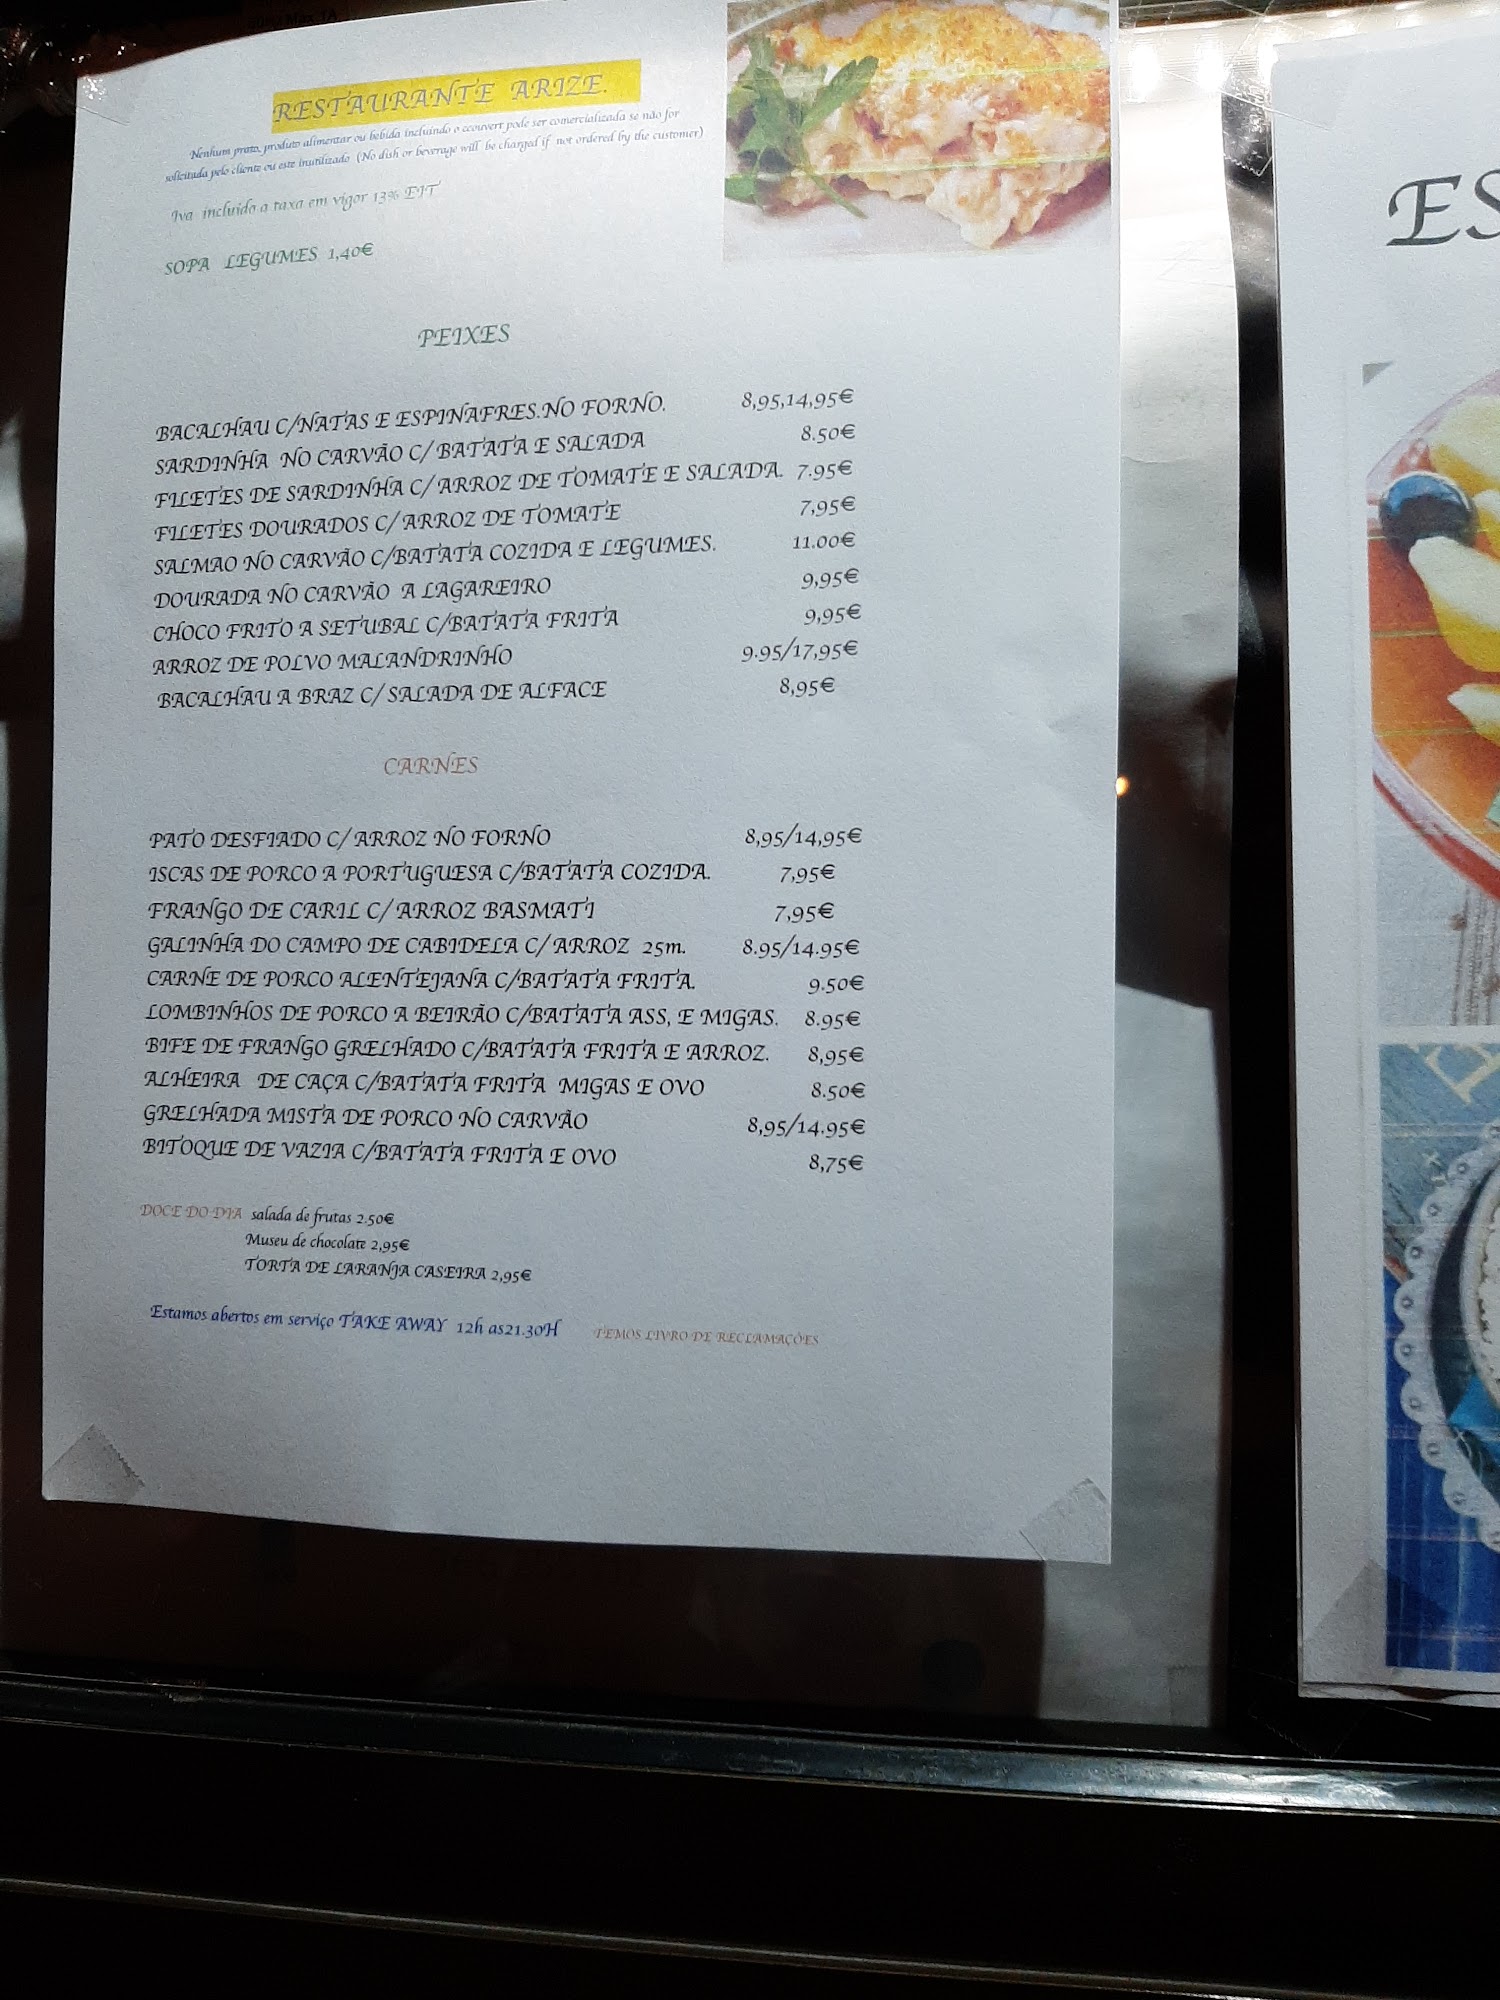 RESTAURANTE ARIZE.
Nenhum prato, produto alimentar ou bebida incluindo o ccouvert pode ser comercializada se não for
solicitada pelo cliente ou este inutilizado (No dish or beverage will be charged if not ordered by the customer)
Iva incluido a taxa em vigor 13%
SOPA LEGUMES 1,40€
PEIXES
BACALHAU C/NATAS E ESPINAFRES.NO FORNO. 8,95,14,95€
SARDINHA NO CARVÃO C/ BATATA E SALADA 8.50€
FILETES DE SARDINHA C/ ARROZ DE TOMATE E SALADA. 7.95€
FILETES DOURADOS C/ ARROZ DE TOMATE 7,95€
SALMAO NO CARVÃO C/BATATA COZIDA E LEGUMES. 11.00€
DOURADA NO CARVÃO A LAGAREIRO 9,95€
CHOCO FRITO A SETUBAL C/BATATA FRITA 9,95€
ARROZ DE POLVO MALANDRINHO 9.95/17,95€
BACALHAU A BRAZ C/ SALADA DE ALFACE 8,95€
CARNES
PATO DESFIADO C/ ARROZ NO FORNO 8,95/14,95€
ISCAS DE PORCO A PORTUGUESA C/BATATA COZIDA. 7,95€
FRANGO DE CARIL C/ ARROZ BASMATI 7,95€
GALINHA DO CAMPO DE CABIDELA C/ ARROZ 25m. 8.95/14.95€
CARNE DE PORCO ALENTEJANA C/BATATA FRITA. 9.50€
LOMBINHOS DE PORCO A BEIRÃO C/BATATA ASS, E MIGAS. 8.95€
BIFE DE FRANGO GRELHADO C/BATATA FRITA E ARROZ. 8,95€
ALHEIRA DE CAÇA C/BATATA FRITA MIGAS E OVO 8.50€
GRELHADA MISTA DE PORCO NO CARVÃO 8,95/14.95€
BITOQUE DE VAZIA C/BATATA FRITA E OVO 8,75€
DOCE DO DIA salada de frutas 2.50€
Museu de chocolate 2,95€
TORTA DE LARANJA CASEIRA 2,95€
Estamos abertos em serviço TAKE AWAY 12h as21.30H TEMOS LIVRO DE RECLAMAÇÕES
ES